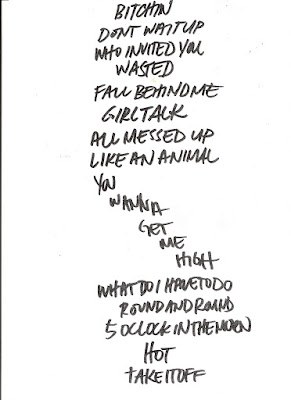 BITCHIN
DONT WAIT UP
WHO INVITED YOU
WASTED
FALL BEHIND ME
GIRL TALK
ALL MESSED UP
LIKE AN ANIMAL
YOU
WANNA
GET
ME
HIGH
WHAT DO I HAVE TO DO
ROUND AND ROUND
5 OCLOCK IN THE MORN
HOT
TAKE IT OFF